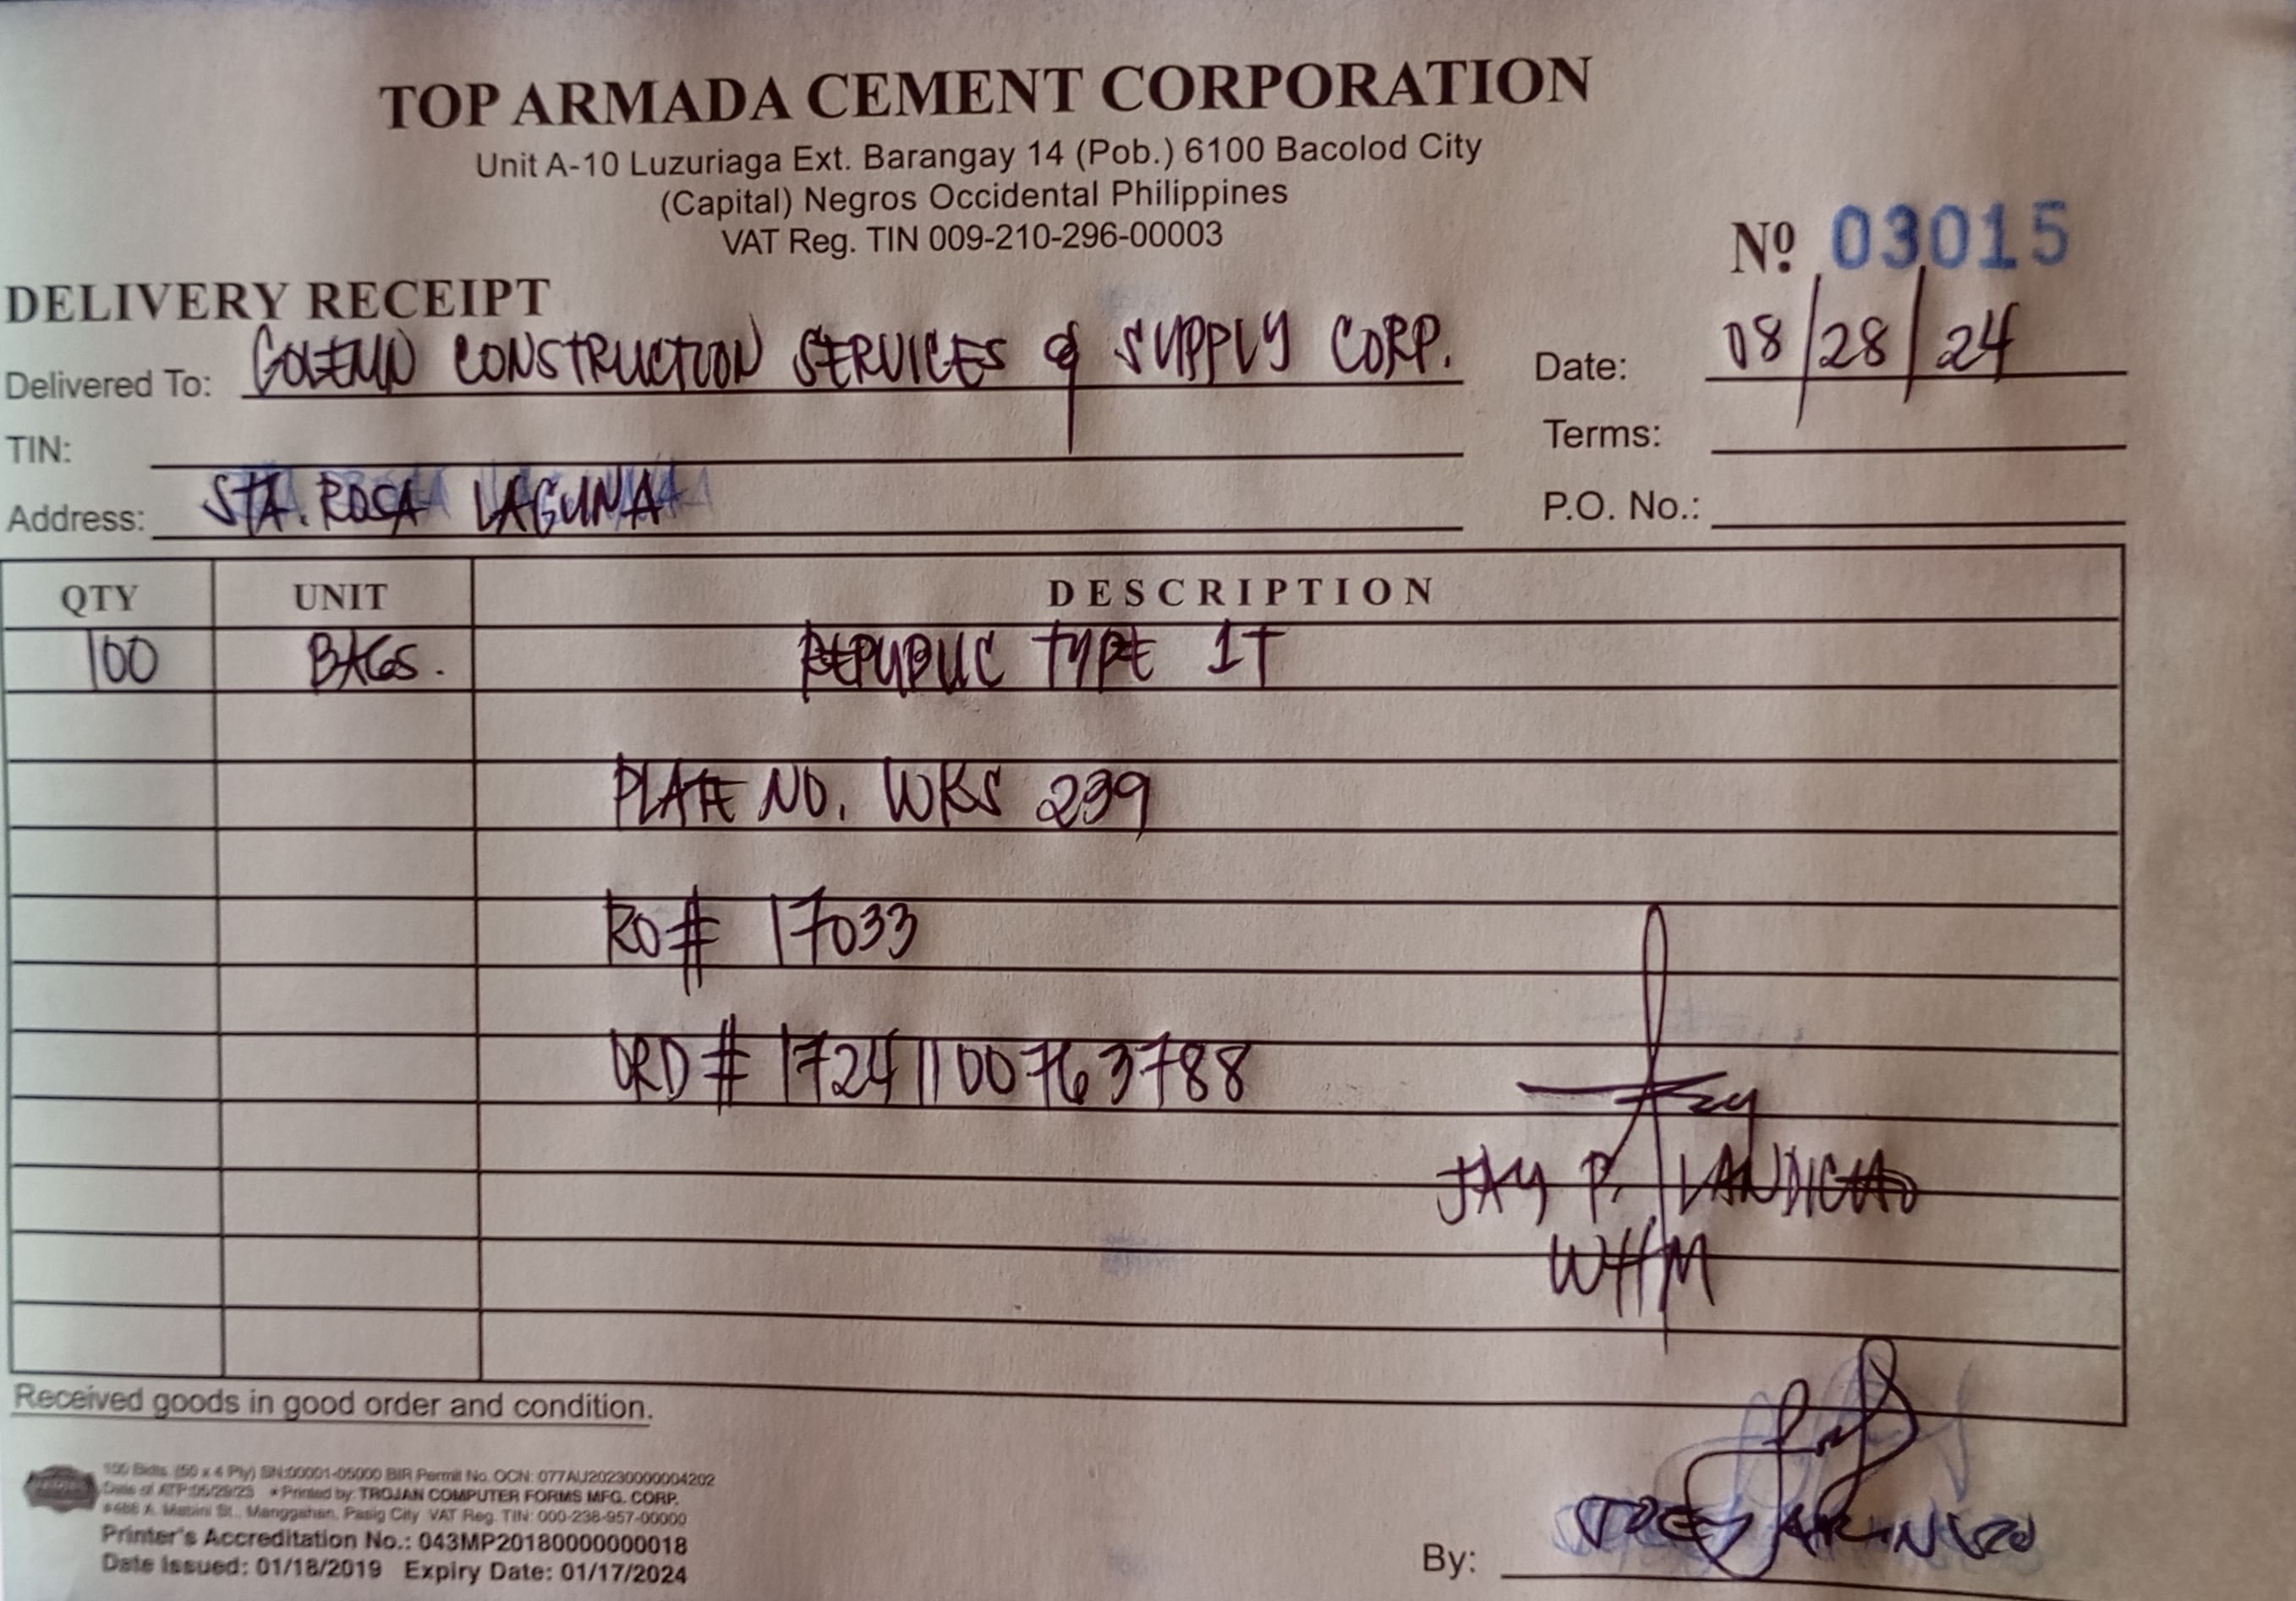 TOP ARMADA CEMENT CORPORATION
Unit A-10 Luzuriaga Ext. Barangay 14 (Pob.) 6100 Bacolod City
(Capital) Negros Occidental Philippines
VAT Reg. TIN 009-210-296-00003
Nº 03015
DELIVERY RECEIPT
Delivered To: CONSTRUCTION SERVICES & SUPPLY CORP. Date: 08/28/24
TIN: Terms:
Address: STA. ROSA LAGUNA P.O. No.:
QTY UNIT DESCRIPTION
100 BAGS. REPUBLIC TYPE 1T
PLATE NO. WKS 239
RO# 17033
ORD# 17241100763788
JAY P. LANDICHO
WHM
Received goods in good order and condition.
100 Bklts. (50 x 4 Ply) SN:00001-05000 BIR Permit No. OCN: 077AU20230000004202
Date of ATP:05/29/23 *Printed by: TROJAN COMPUTER FORMS MFG. CORP.
#486 A. Mabini St., Manggahan, Pasig City VAT Reg. TIN: 000-238-957-00000
Printer's Accreditation No.: 043MP20180000000018
Date Issued: 01/18/2019 Expiry Date: 01/17/2024
By: JOEY